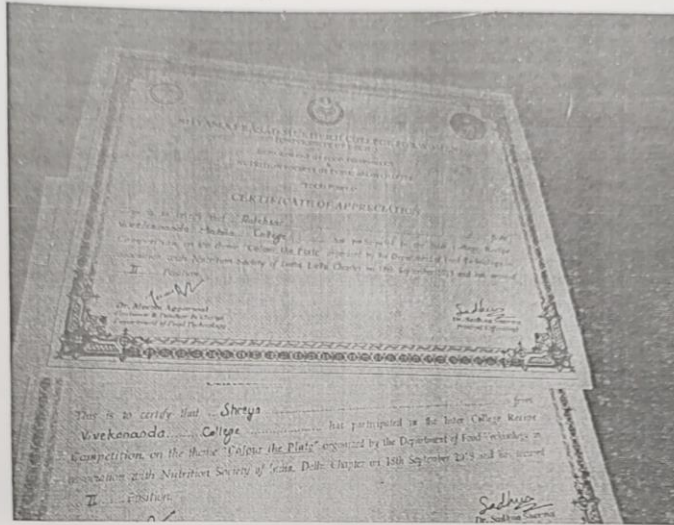 SHYAMA PRASAD MUKHERJI COLLEGE FOR WOMEN
NUTRITION SOCIETY OF INDIA, DELHI CHAPTER
CERTIFICATE OF APPRECIATION
This is to certify that
Vivekananda College has participated in the Inter College Recipe
Competition on the theme "Colour the Plate" organized by the Department of Food Technology in
association with Nutrition Society of India, Delhi Chapter on 15th September and has secured
II Position
Dr.
Convenor & Teacher In-Charge
Department of Food Technology
Sadhna
Dr. Sadhna Sharma
Principal (Officiating)
This is to certify that Shreya from
Vivekananda College has participated in the Inter College Recipe
Competition on the theme "Colour the Plate" organized by the Department of Food Technology in
association with Nutrition Society of India, Delhi Chapter on 15th September and has secured
II Position
Sadhna
Dr. Sadhna Sharma